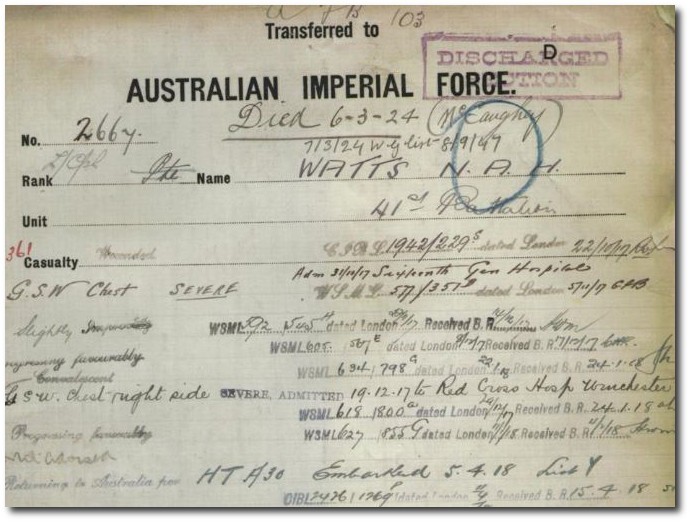 103
Transferred to
D
DISCHARGED
AUSTRALIAN IMPERIAL FORCE.
Died 6-3-24 (McCaughey)
No. 2667.
7/3/24 W.G list 8/9/47
L/Cpl
Rank Pte Name WATTS N. A. H.
41st Battalion
Unit
361
Casualty Wounded C.I.R.L. 1942/229 dated London 22/10/17
Adm 31/10/17 Sixteenth Gen Hospital
G.S.W Chest SEVERE W.S.M.L. 577/351 dated London 5/11/17
Slightly WSML 592 545 dated London Received B.R.
WSML 605 567E dated London Received B.R. 7/12/17
progressing favourably
Convalescent WSML 634 798 dated London Received B.R. 24.1.18
G.S.W. Chest right side SEVERE, ADMITTED 19.12.17 to Red Cross Hosp Winchester
WSML 618 1800 dated London Received B.R. 24.1.18
Progressing favourably WSML 627 1855 dated London Received B.R.
Returning to Australia per HT A30 Embarked 5.4.18 List Y
CIRL 2426 1269 dated London Received B.R. 15.4.18